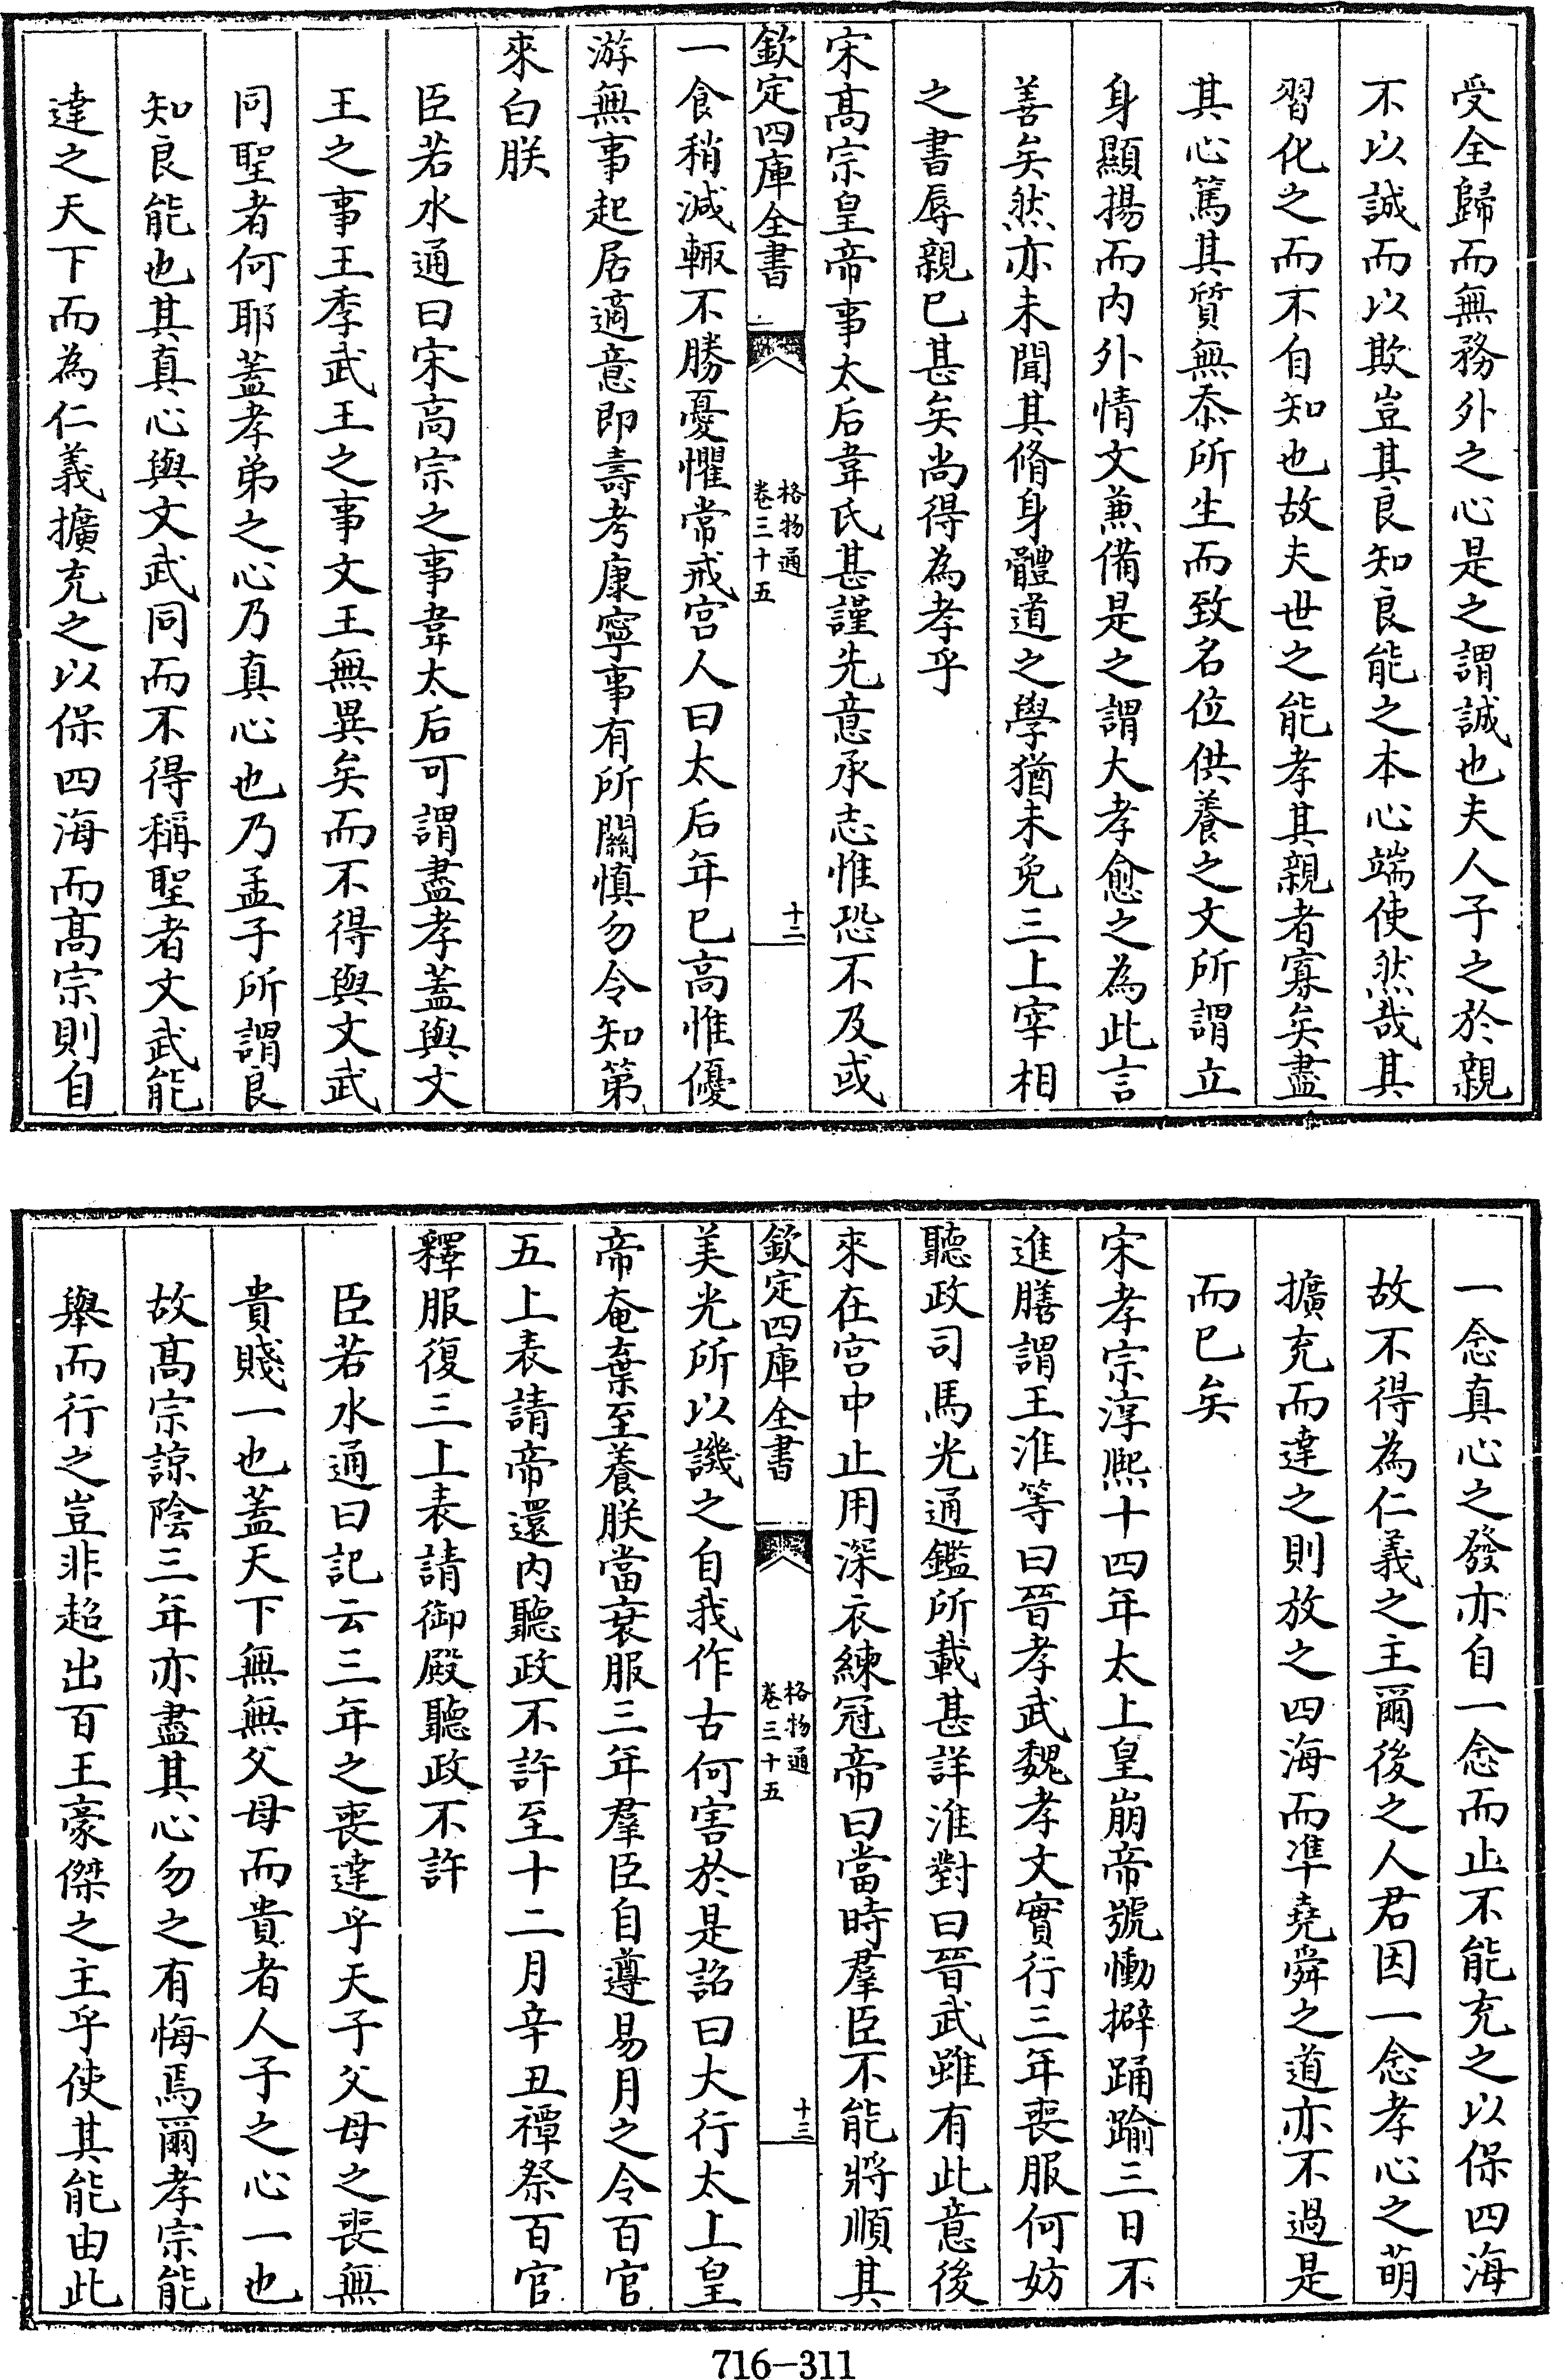 受全歸而無務外之心是之謂誠也夫人子之於親
不以誠而以欺豈其良知良能之本心端使然哉其
習化之而不自知也故夫世之能孝其親者寡矣盡
其心篤其質無忝所生而致名位供養之文所謂立
身顯揚而内外情文兼備是之謂大孝愈之為此言
善矣然亦未聞其脩身體道之學猶未免三上宰相
之書辱親已甚矣尚得為孝乎
宋髙宗皇帝事太后韋氏甚謹先意承志惟恐不及或
欽定四庫全書
格物通
卷三十五
十二
一食稍減輙不勝憂懼常戒宫人曰太后年已高惟優
游無事起居適意即壽考康寧事有所闗慎勿令知第
來白朕
臣若水通曰宋高宗之事韋太后可謂盡孝蓋與文
王之事王季武王之事文王無異矣而不得與文武
同聖者何耶蓋孝弟之心乃真心也乃孟子所謂良
知良能也其真心與文武同而不得稱聖者文武能
達之天下而為仁義擴充之以保四海而髙宗則自
一念真心之發亦自一念而止不能充之以保四海
故不得為仁義之主爾後之人君因一念孝心之萌
擴充而達之則放之四海而凖堯舜之道亦不過是
而已矣
宋孝宗淳熙十四年太上皇崩帝號慟擗踊踰三日不
進膳謂王淮等曰晉孝武魏孝文實行三年喪服何妨
聽政司馬光通鑑所載甚詳淮對曰晉武雖有此意後
來在宫中止用深衣練冠帝曰當時羣臣不能將順其
欽定四庫全書
格物通
卷三十五
十三
美光所以譏之自我作古何害於是詔曰大行太上皇
帝奄棄至養朕當衰服三年羣臣自遵易月之令百官
五上表請帝還内聽政不許至十二月辛丑禫祭百官
釋服復三上表請御殿聽政不許
臣若水通曰記云三年之喪達乎天子父母之喪無
貴賤一也蓋天下無無父母而貴者人子之心一也
故髙宗諒陰三年亦盡其心勿之有悔焉爾孝宗能
舉而行之豈非超出百王豪傑之主乎使其能由此
716-311